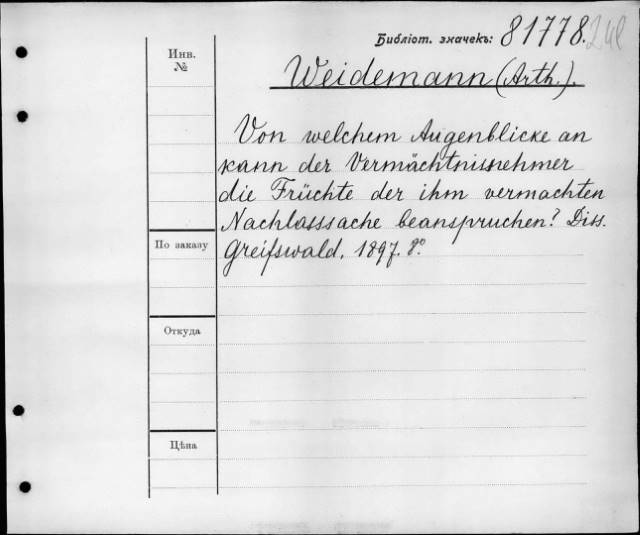 Библіот. значекъ: 81778.
Инв.
№
Weidemann (Arth.).
Von welchem Augenblicke an
kann der Vermächtnisnehmer
die Früchte der ihm vermachten
Nachlasssache beanspruchen? Diss.
Greifswald. 1897. 8°.
По заказу
Откуда
Цѣна